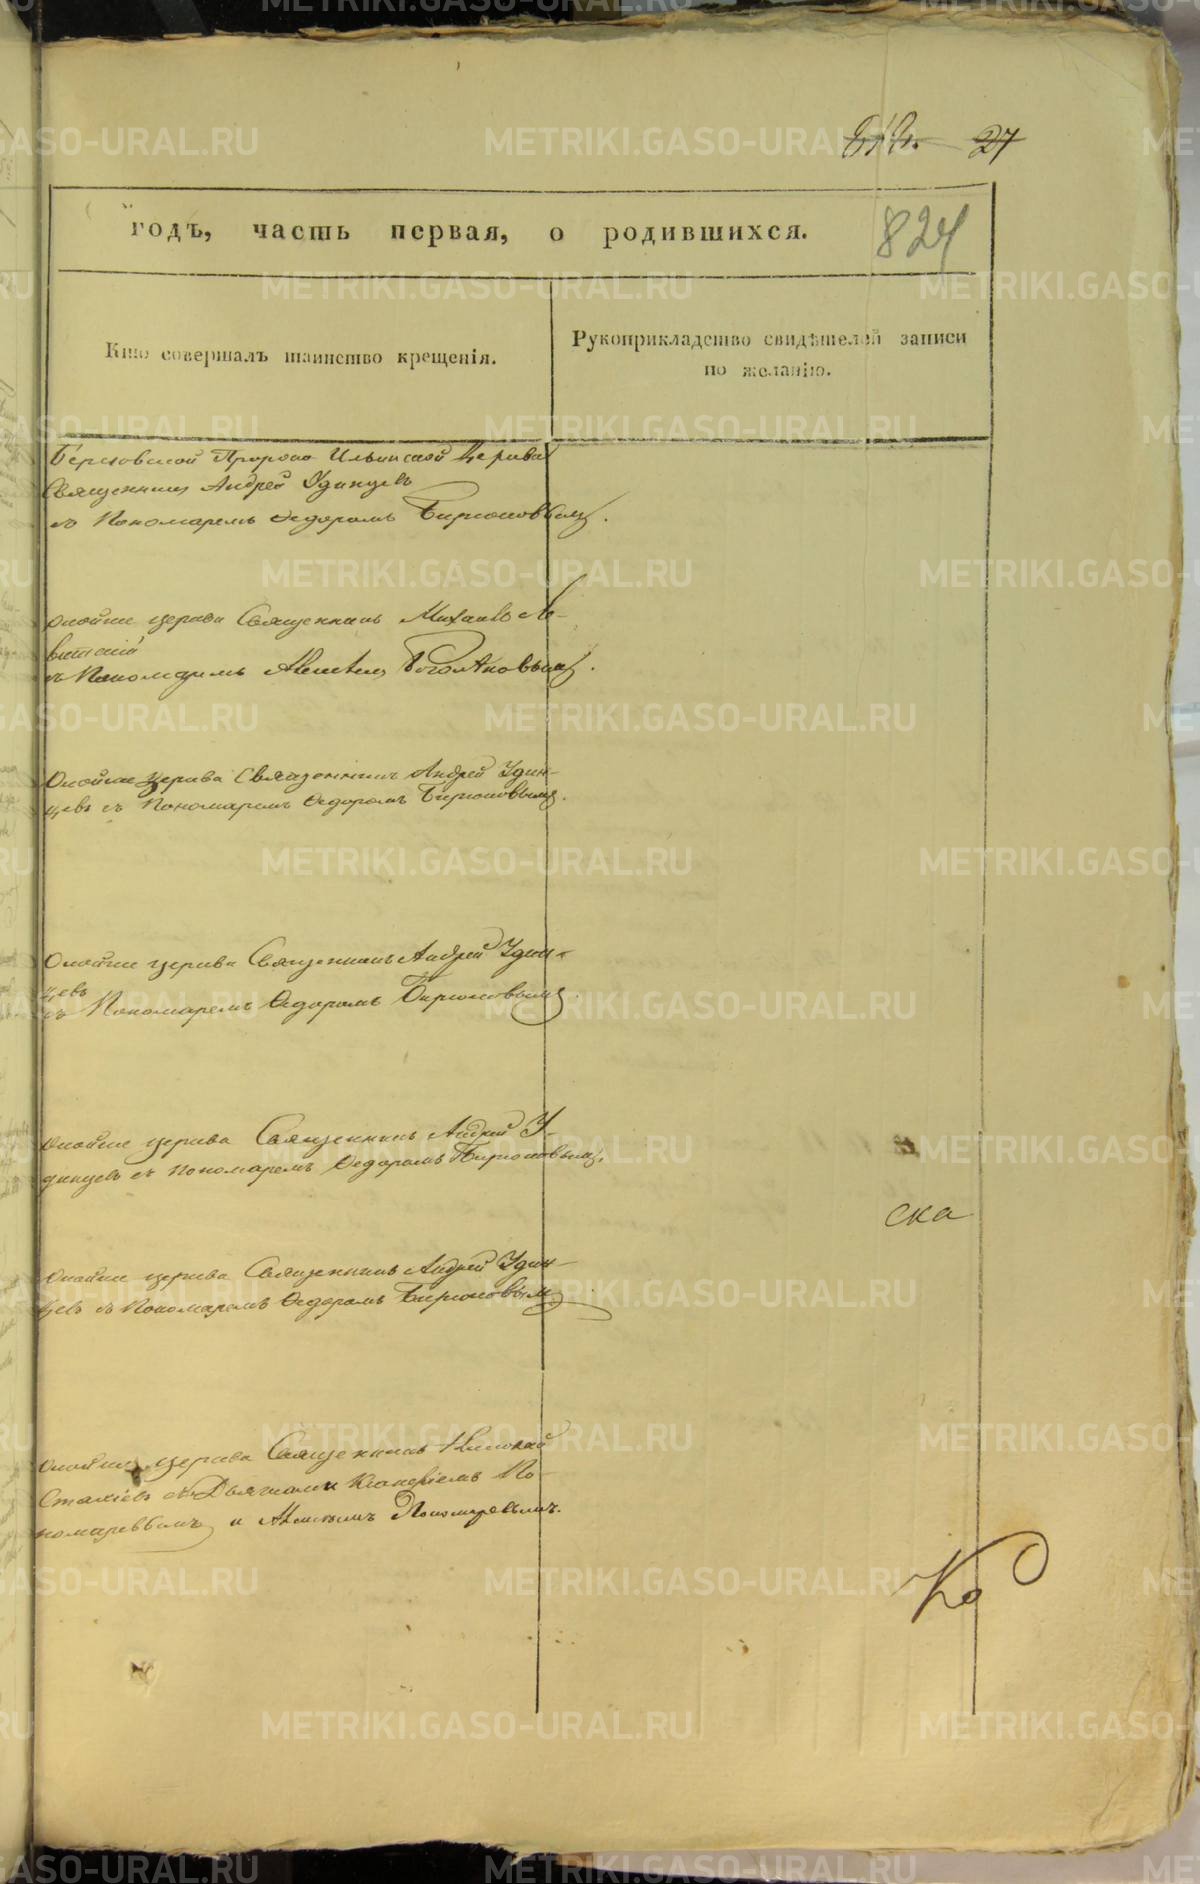 27
824
годъ, часть первая, о родившихся.
Кто совершалъ таинство крещенія.
Рукоприкладство свидѣтелей записи
по желанію.
Березовской Пророко Ильинской Церкви
Священникъ Андрей Удинцевъ
съ Пономаремъ Ѳедоромъ Бирюковымъ.
Онойже церкви Священникъ Михаилъ Ле-
витскій
съ Пономаремъ
Онойже церкви Священникъ Андрей Удин-
цевъ съ Пономаремъ Ѳедоромъ Бирюковымъ.
Онойже церкви Священникъ Андрей Удин-
цевъ
съ Пономаремъ Ѳедоромъ Бирюковымъ
Онойже церкви Священникъ Андрей У-
динцевъ съ Пономаремъ Ѳедоромъ Бирюковымъ.
ска
Онойже церкви Священникъ Андрей Удин-
цевъ съ Пономаремъ Ѳедоромъ Бирюковымъ
Онойже церкви Священникъ Николай
съ По-
номаревымъ и Пономаревымъ.
Ко
METRIKI.GASO-URAL.RU